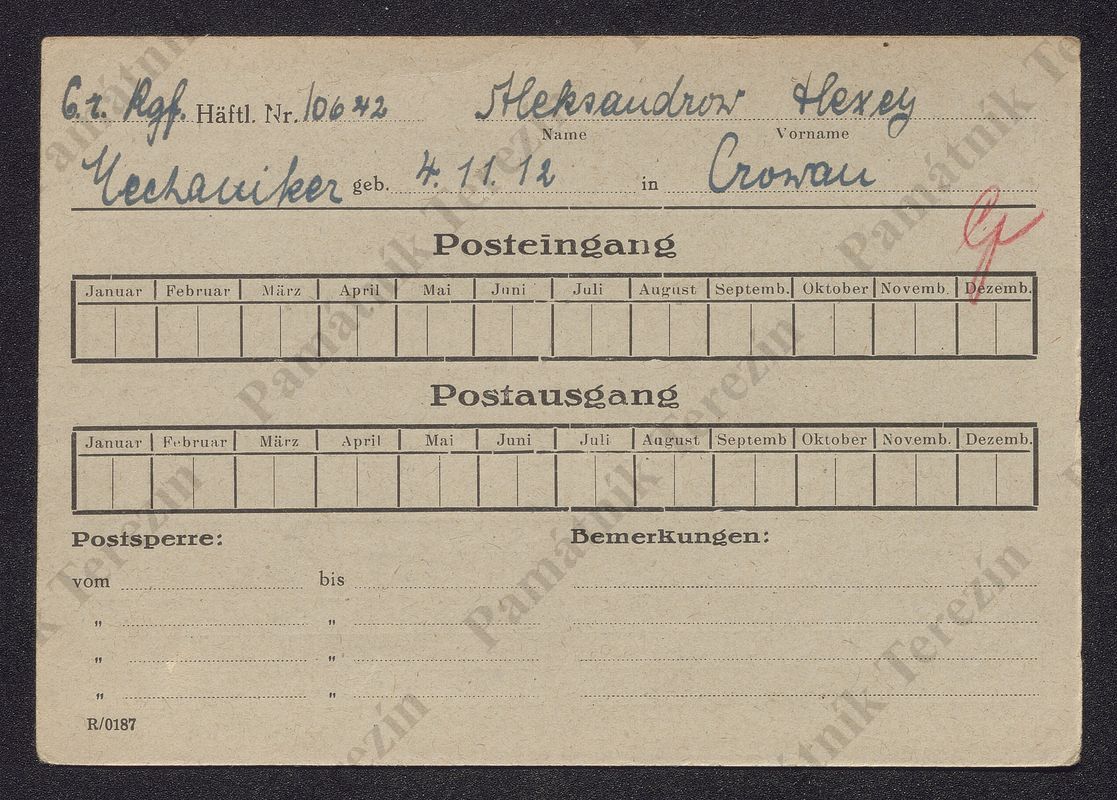 C.r. Kgf. Häftl. Nr. 10642 Aleksandrow Alexey
Name Vorname
Mechaniker geb. 4.11.12 in Crowan
Posteingang
Januar Februar März April Mai Juni Juli August Septemb. Oktober Novemb. Dezemb.
Postausgang
Januar Februar März April Mai Juni Juli August Septemb Oktober Novemb. Dezemb.
Postsperre: Bemerkungen:
vom bis
" "
" "
" "
R/0187
Památník Terezín